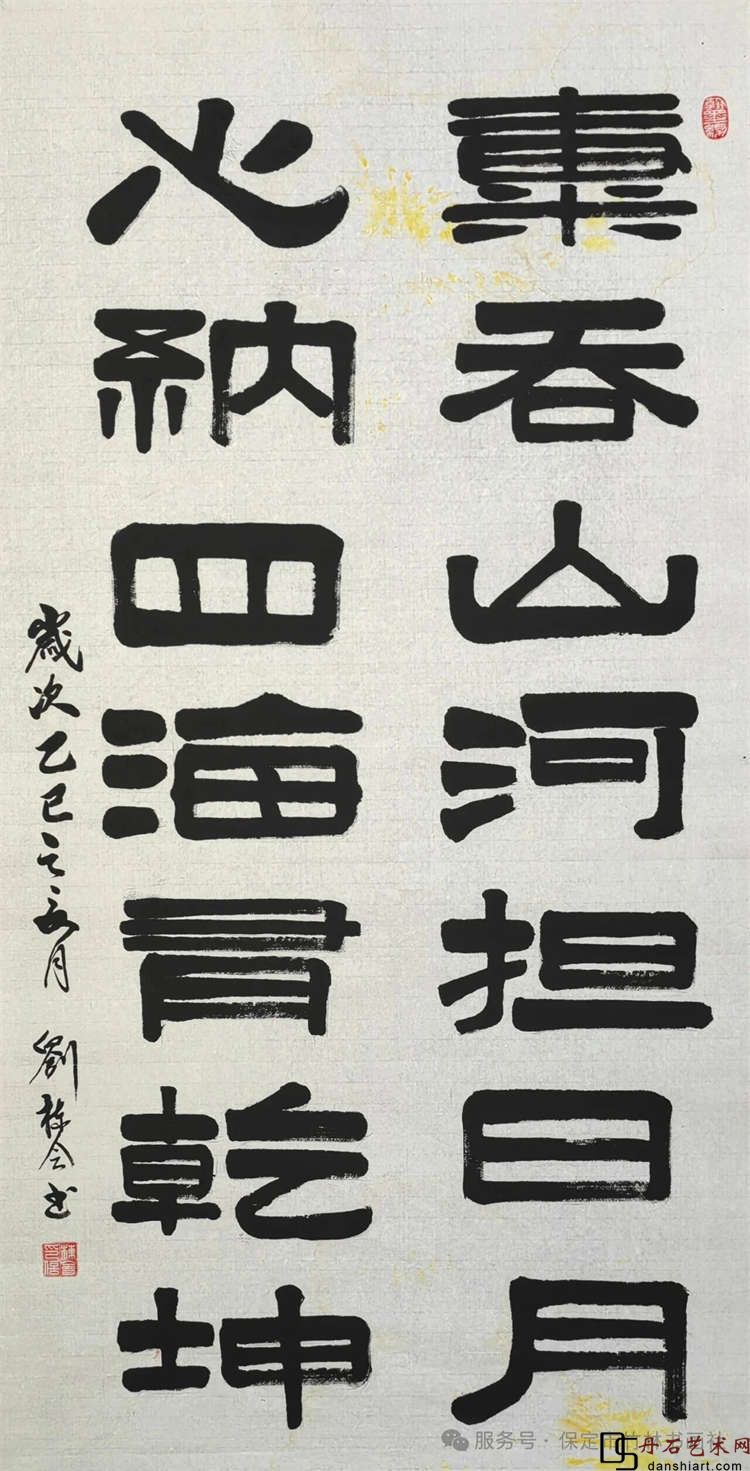 吞山河担日月
心納四海有乾坤
歲次乙巳之亥月 劉 书
服务号·保定市竹林书画社
丹石艺术网
danshiart.com